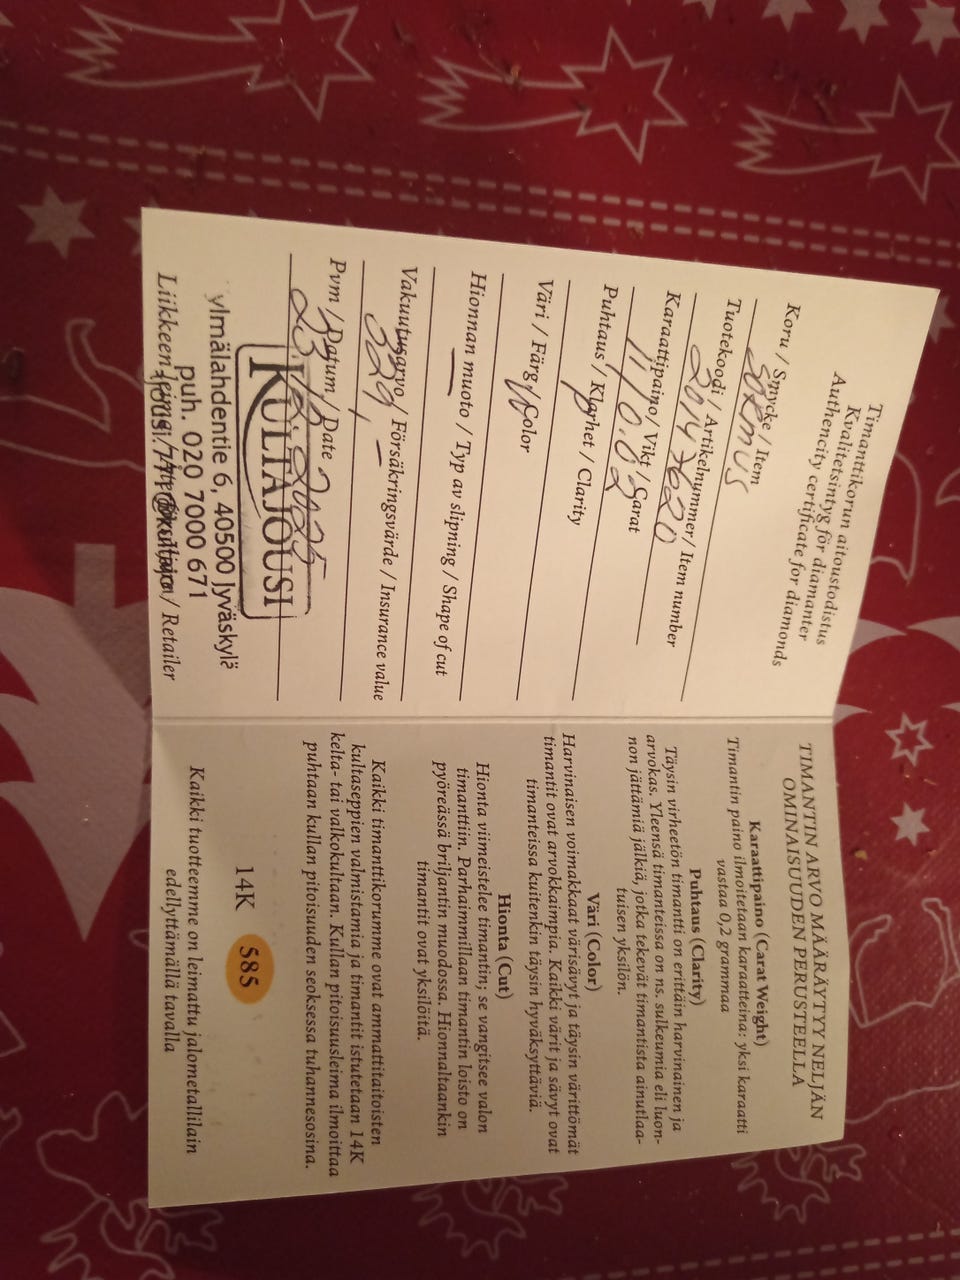 Timanttikorun aitoustodistus
Kvalitetsintyg för diamanter
Authencity certificate for diamonds
Koru / Smycke / Item
SORMUS
Tuotekoodi / Artikelnummer / Item number
Karaattipaino / Vikt / Carat
Puhtaus / Klarhet / Clarity
P
Väri / Färg / Color
W
Hionnan muoto / Typ av slipning / Shape of cut
—
Vakuutusarvo / Försäkringsvärde / Insurance value
329,-
Pvm / Datum / Date
23.12.2025
KULTAJOUSI
ylmälahdentie 6, 40500 Jyväskylä
puh. 020 7000 671
Liikkeen leima / / Retailer
TIMANTIN ARVO MÄÄRÄYTYY NELJÄN
OMINAISUUDEN PERUSTEELLA
Karaattipaino (Carat Weight)
Timantin paino ilmoitetaan karaatteina: yksi karaatti
vastaa 0,2 grammaa
Puhtaus (Clarity)
Täysin virheetön timantti on erittäin harvinainen ja
arvokas. Yleensä timanteissa on ns. sulkeumia eli luon-
non jättämiä jälkiä, jotka tekevät timantista ainutlaa-
tuisen yksilön.
Väri (Color)
Harvinaisen voimakkaat värisävyt ja täysin värittömät
timantit ovat arvokkaimpia. Kaikki värit ja sävyt ovat
timanteissa kuitenkin täysin hyväksyttäviä.
Hionta (Cut)
Hionta viimeistelee timantin; se vangitsee valon
timanttiin. Parhaimmillaan timantin loisto on
pyöreässä briljantin muodossa. Hionnaltaankin
timantit ovat yksilöitä.
Kaikki timanttikorumme ovat ammattitaitoisten
kultaseppien valmistamia ja timantit istutetaan 14K
kelta- tai valkokultaan. Kullan pitoisuusleima ilmoittaa
puhtaan kullan pitoisuuden seoksessa tuhannesosina.
14K 585
Kaikki tuotteemme on leimattu jalometallilain
edellyttämällä tavalla